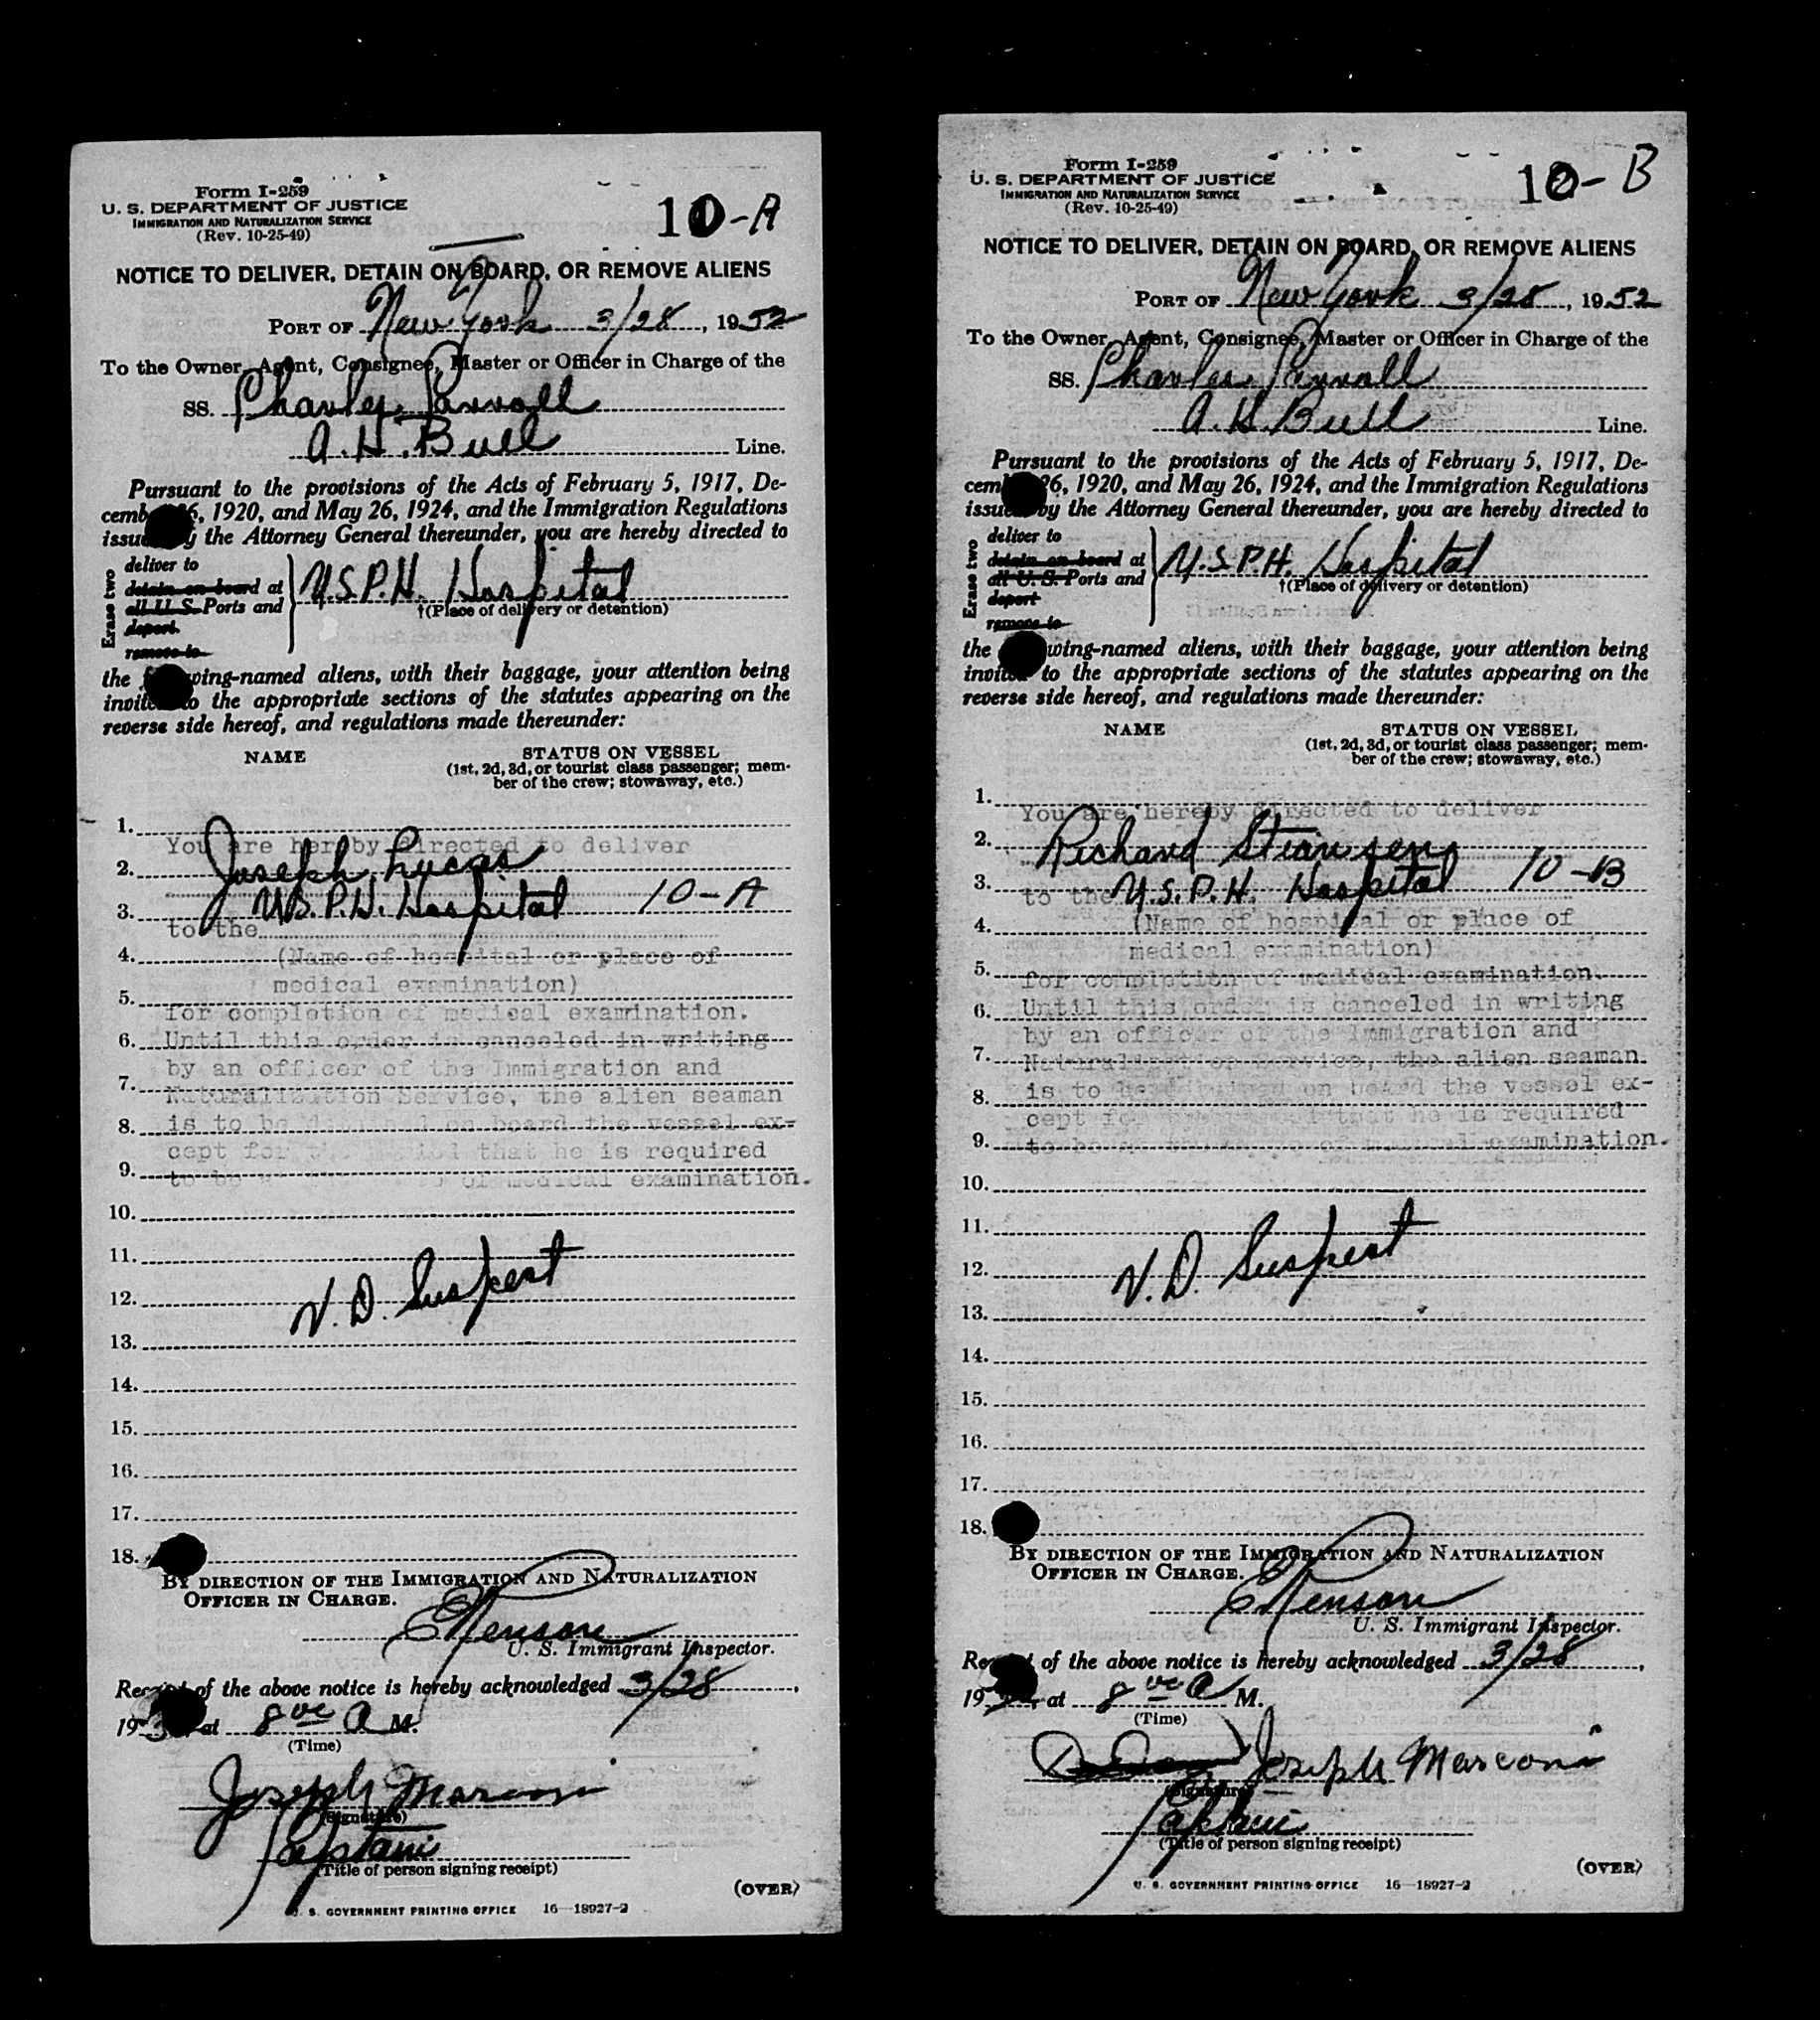 Form I-259
U. S. DEPARTMENT OF JUSTICE
IMMIGRATION AND NATURALIZATION SERVICE
(Rev. 10-25-49)
10-A
NOTICE TO DELIVER, DETAIN ON BOARD, OR REMOVE ALIENS
PORT OF New York 3/28, 1952
To the Owner, Agent, Consignee, Master or Officer in Charge of the
SS. Charles
A. H. Bull Line.
Pursuant to the provisions of the Acts of February 5, 1917, De-
26, 1920, and May 26, 1924, and the Immigration Regulations
by the Attorney General thereunder, you are hereby directed to
Erase two
deliver to
detain on board at
all U. S. Ports and
deport
remove to
U.S.P.H. Hospital
†(Place of delivery or detention)
the following-named aliens, with their baggage, your attention being
invited to the appropriate sections of the statutes appearing on the
reverse side hereof, and regulations made thereunder:
NAME STATUS ON VESSEL
(1st, 2d, 3d, or tourist class passenger; mem-
ber of the crew; stowaway, etc.)
1.
You are hereby directed to deliver
2. Joseph Lucas
U.S.P.H. Hospital 10-A
3.
to the
4. (Name of hospital or place of
medical examination)
5.
for completion of medical examination.
6. Until this order is canceled in writing
by an officer of the Immigration and
7. Naturalization Service, the alien seaman
8. is to be detained on board the vessel ex-
cept for the period that he is required
9. to be of medical examination.
10.
11.
V. D. Suspect
12.
13.
14.
15.
16.
17.
18.
BY DIRECTION OF THE IMMIGRATION AND NATURALIZATION
OFFICER IN CHARGE.
U. S. Immigrant Inspector.
Receipt of the above notice is hereby acknowledged 3/28,
19 at 8 00 A M.
(Time)
Joseph Marconi
(Signature)
Captain
(Title of person signing receipt)
(OVER)
U. S. GOVERNMENT PRINTING OFFICE 16—18927-2
Form I-259
U. S. DEPARTMENT OF JUSTICE
IMMIGRATION AND NATURALIZATION SERVICE
(Rev. 10-25-49)
10-B
NOTICE TO DELIVER, DETAIN ON BOARD, OR REMOVE ALIENS
PORT OF New York 3/28, 1952
To the Owner, Agent, Consignee, Master or Officer in Charge of the
SS. Charles
A. H. Bull Line.
Pursuant to the provisions of the Acts of February 5, 1917, De-
26, 1920, and May 26, 1924, and the Immigration Regulations
issued by the Attorney General thereunder, you are hereby directed to
Erase two
deliver to
detain on board at
all U. S. Ports and
deport
remove to
U.S.P.H. Hospital
†(Place of delivery or detention)
the following-named aliens, with their baggage, your attention being
invited to the appropriate sections of the statutes appearing on the
reverse side hereof, and regulations made thereunder:
NAME STATUS ON VESSEL
(1st, 2d, 3d, or tourist class passenger; mem-
ber of the crew; stowaway, etc.)
1.
You are hereby directed to deliver
2. Richard
3. to the U.S.P.H. Hospital 10-B
4. (Name of hospital or place of
medical examination)
5. for completion of medical examination.
6. Until this order is canceled in writing
by an officer of the Immigration and
7. Naturalization Service, the alien seaman
8. is to be detained on board the vessel ex-
cept for that he is required
9. to be of medical examination.
10.
11.
V. D. Suspect
12.
13.
14.
15.
16.
17.
18.
BY DIRECTION OF THE IMMIGRATION AND NATURALIZATION
OFFICER IN CHARGE.
U. S. Immigrant Inspector.
Receipt of the above notice is hereby acknowledged 3/28,
19 at 8 00 A M.
(Time)
Joseph Marconi
(Signature)
Captain
(Title of person signing receipt)
(OVER)
U. S. GOVERNMENT PRINTING OFFICE 16—18927-2